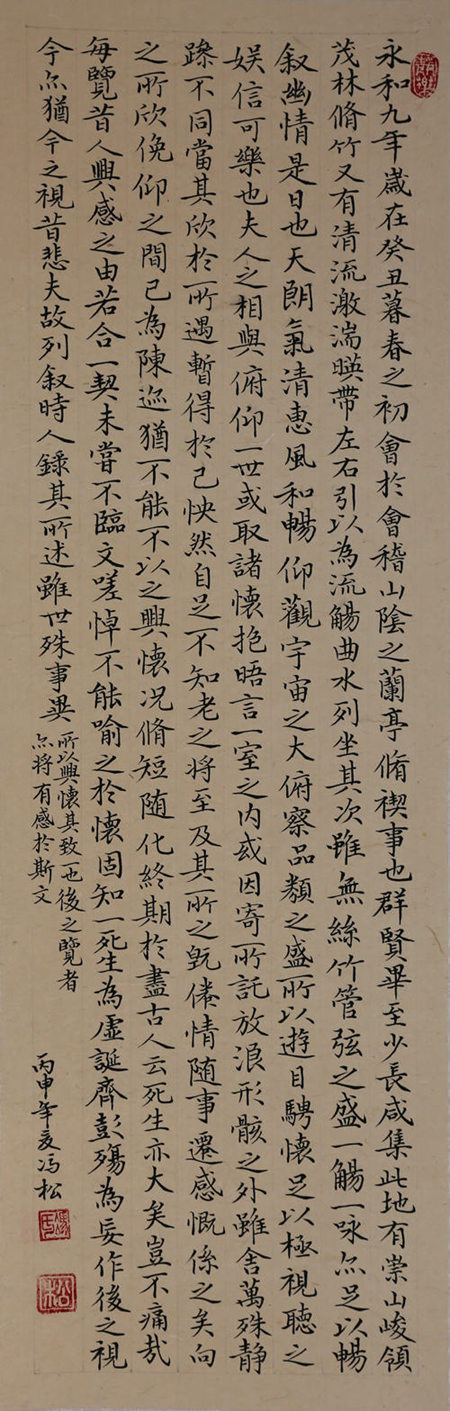 永和九年歲在癸丑暮春之初會於會稽山陰之蘭亭脩禊事也群賢畢至少長咸集此地有崇山峻領
茂林脩竹又有清流激湍暎帶左右引以為流觴曲水列坐其次雖無絲竹管弦之盛一觴一咏亦足以暢
叙幽情是日也天朗氣清惠風和暢仰觀宇宙之大俯察品類之盛所以遊目騁懷足以極視聽之
娱信可樂也夫人之相與俯仰一世或取諸懷抱晤言一室之内或因寄所託放浪形骸之外雖舍萬殊静
躁不同當其欣於所遇暫得於己怏然自足不知老之将至及其所之既倦情随事遷感慨係之矣向
之所欣俛仰之間已為陳迹猶不能不以之興懷况脩短随化終期於盡古人云死生亦大矣豈不痛哉
每覽昔人興感之由若合一契未嘗不臨文嗟悼不能喻之於懷固知一死生為虚誕齊彭殤為妄作後之視
今亦猶今之視昔悲夫故列叙時人錄其所述雖世殊事異
所以興懷其致一也後之覽者
亦将有感於斯文
丙申年夏冯松